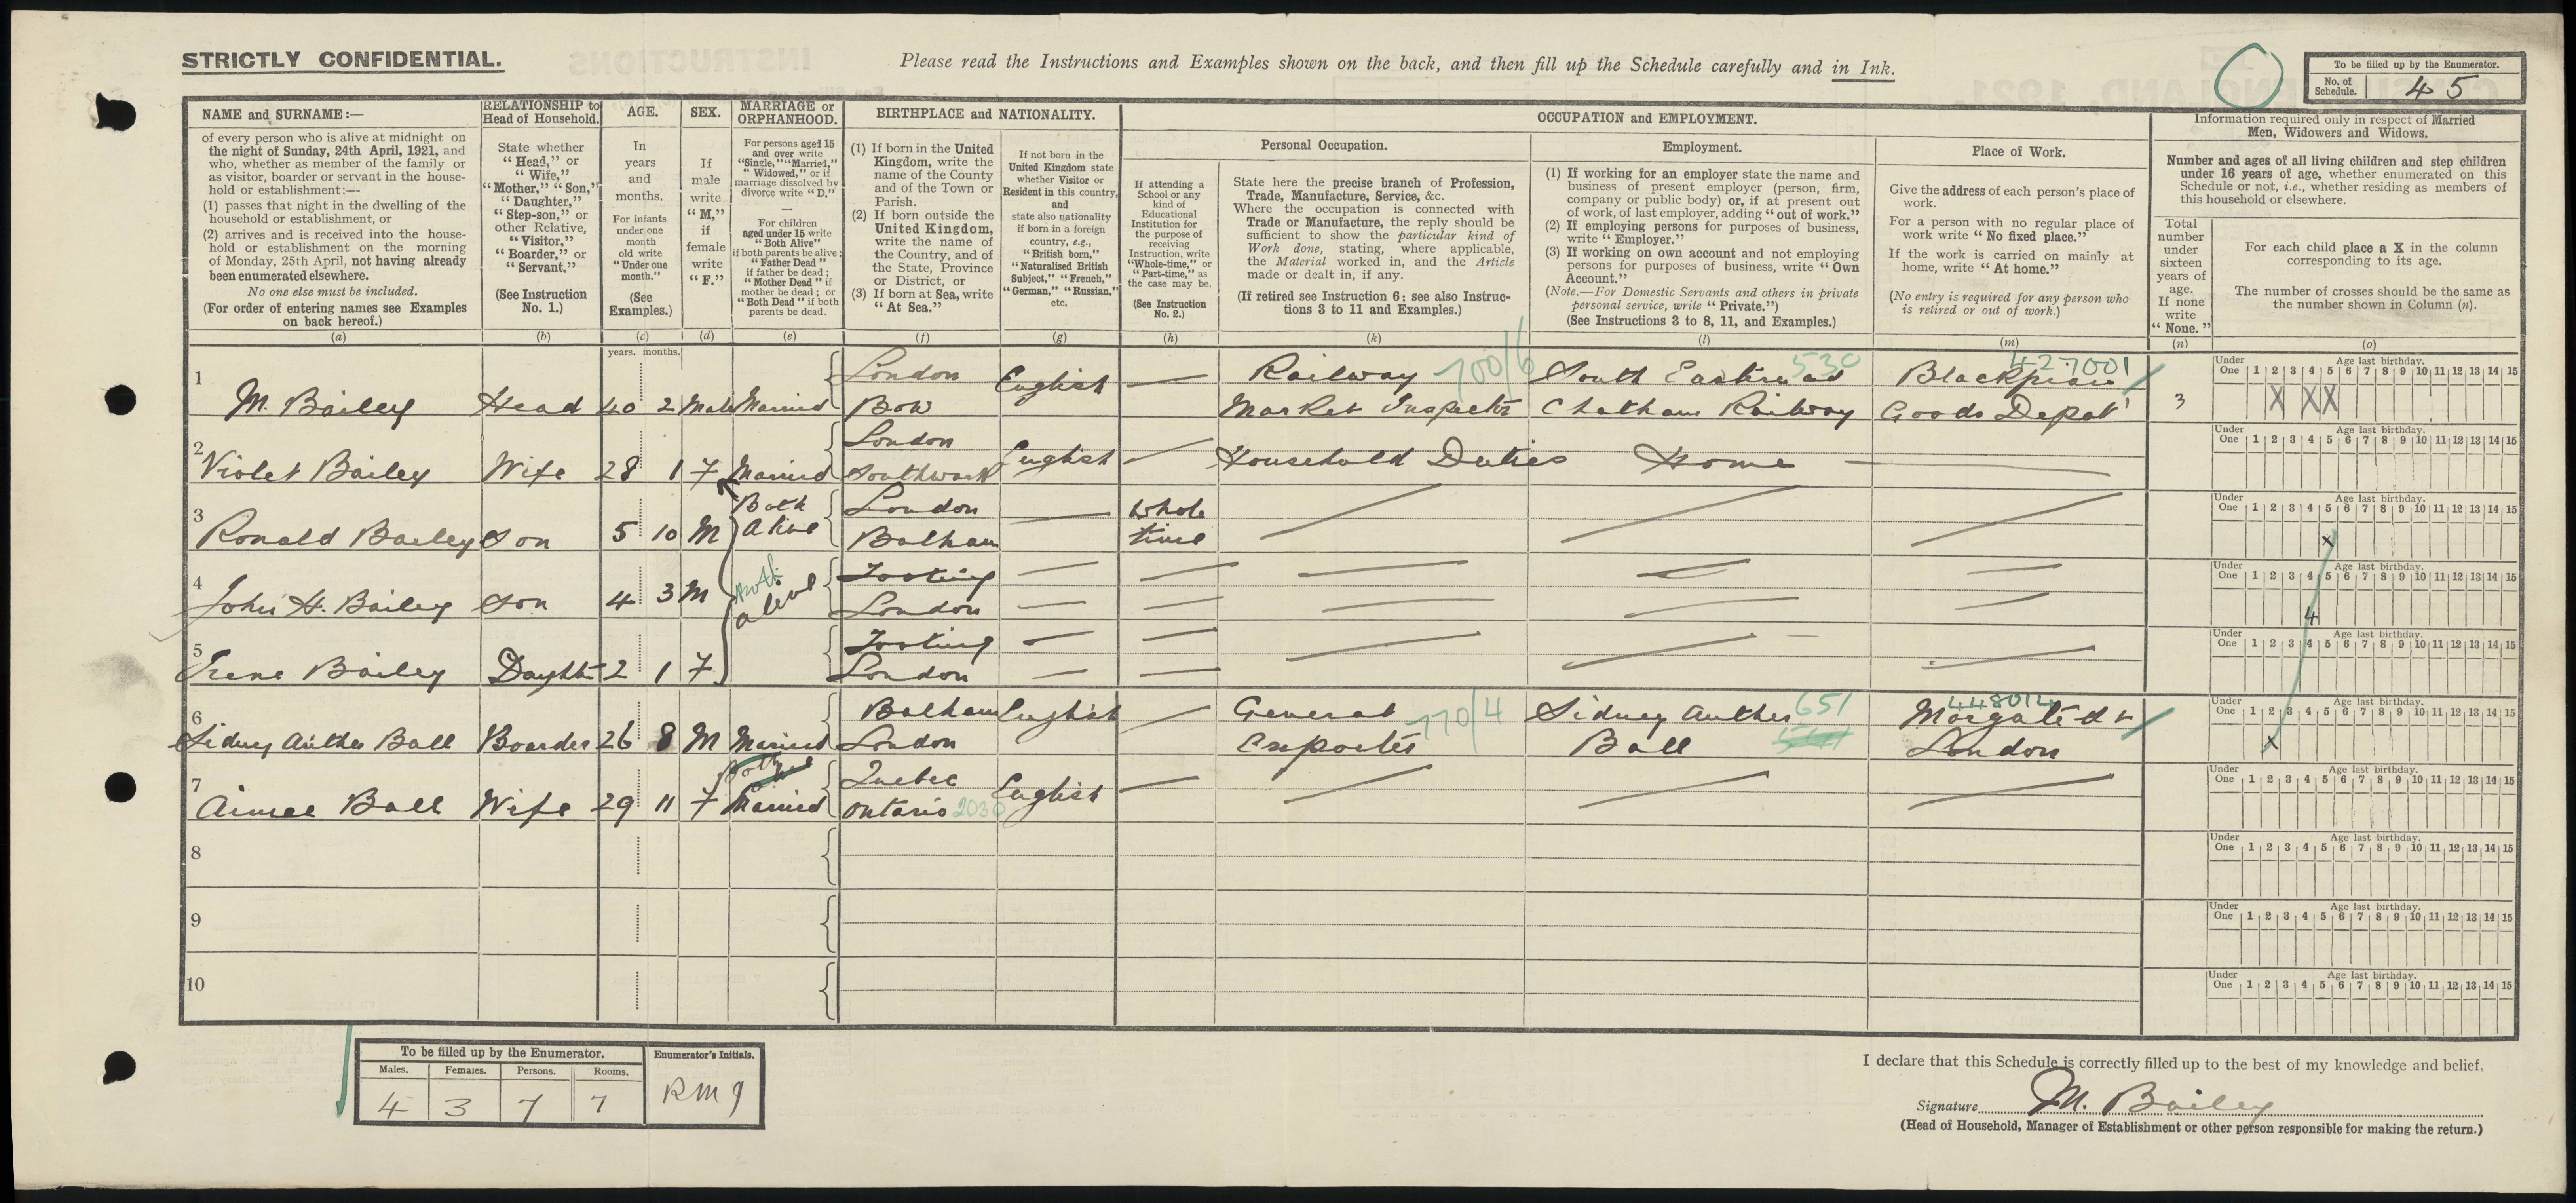 STRICTLY CONFIDENTIAL.
Please read the Instructions and Examples shown on the back, and then fill up the Schedule carefully and in Ink.
To be filled up by the Enumerator.
No. of Schedule. 45
NAME and SURNAME:—
of every person who is alive at midnight on
the night of Sunday, 24th April, 1921, and
who, whether as member of the family or
as visitor, boarder or servant in the house-
hold or establishment:—
(1) passes that night in the dwelling of the
household or establishment, or
(2) arrives and is received into the house-
hold or establishment on the morning
of Monday, 25th April, not having already
been enumerated elsewhere.
No one else must be included.
(For order of entering names see Examples
on back hereof.)
(a)
RELATIONSHIP to
Head of Household.
State whether
"Head," or
"Wife,"
"Mother," "Son,"
"Daughter,"
"Step-son," or
other Relative,
"Visitor,"
"Boarder," or
"Servant."
(See Instruction
No. 1.)
(b)
AGE.
In
years
and
months.
For infants
under one
month
old write
"Under one
month."
(See
Examples.)
(c)
SEX.
If
male
write
"M,"
if
female
write
"F."
(d)
MARRIAGE or
ORPHANHOOD.
For persons aged 15
and over write
"Single," "Married,"
"Widowed," or if
marriage dissolved by
divorce write "D."
For children
aged under 15 write
"Both Alive"
if both parents be alive;
"Father Dead"
if father be dead;
"Mother Dead" if
mother be dead; or
"Both Dead" if both
parents be dead.
(e)
BIRTHPLACE and NATIONALITY.
(1) If born in the United
Kingdom, write the
name of the County
and of the Town or
Parish.
(2) If born outside the
United Kingdom,
write the name of
the Country, and of
the State, Province
or District, or
(3) If born at Sea, write
"At Sea."
(f)
If not born in the
United Kingdom state
whether Visitor or
Resident in this country,
and
state also nationality
if born in a foreign
country, e.g.,
"British born,"
"Naturalised British
Subject," "French,"
"German," "Russian,"
etc.
(g)
OCCUPATION and EMPLOYMENT.
If attending a
School or any
kind of
Educational
Institution for
the purpose of
receiving
Instruction, write
"Whole-time," or
"Part-time," as
the case may be.
(See Instruction
No. 2.)
(h)
Personal Occupation.
State here the precise branch of Profession,
Trade, Manufacture, Service, &c.
Where the occupation is connected with
Trade or Manufacture, the reply should be
sufficient to show the particular kind of
Work done, stating, where applicable,
the Material worked in, and the Article
made or dealt in, if any.
(If retired see Instruction 6; see also Instruc-
tions 3 to 11 and Examples.)
(k)
Employment.
(1) If working for an employer state the name and
business of present employer (person, firm,
company or public body) or, if at present out
of work, of last employer, adding "out of work."
(2) If employing persons for purposes of business,
write "Employer."
(3) If working on own account and not employing
persons for purposes of business, write "Own
Account."
(Note.—For Domestic Servants and others in private
personal service, write "Private.")
(See Instructions 3 to 8, 11, and Examples.)
(l)
Place of Work.
Give the address of each person's place of
work.
For a person with no regular place of
work write "No fixed place."
If the work is carried on mainly at
home, write "At home."
(No entry is required for any person who
is retired or out of work.)
(m)
Information required only in respect of Married
Men, Widowers and Widows.
Number and ages of all living children and step children
under 16 years of age, whether enumerated on this
Schedule or not, i.e., whether residing as members of
this household or elsewhere.
Total
number
under
sixteen
years of
age.
If none
write
"None."
(n)
For each child place a X in the column
corresponding to its age.
The number of crosses should be the same as
the number shown in Column (n).
(o)
years. months.
Under One Age last birthday. 1 2 3 4 5 6 7 8 9 10 11 12 13 14 15
1 M. Bailey Head 40 2 Male Married London Bow English — Railway Market Inspector 700/6 South Eastern and Chatham Railway 530 Goods Depot 427001 3 X X X
Under One Age last birthday. 1 2 3 4 5 6 7 8 9 10 11 12 13 14 15
2 Violet Bailey Wife 28 1 F Married London Southwark English — Household Duties Home —
Under One Age last birthday. 1 2 3 4 5 6 7 8 9 10 11 12 13 14 15
3 Ronald Bailey Son 5 10 M Both Alive London Balham — Whole time X
Under One Age last birthday. 1 2 3 4 5 6 7 8 9 10 11 12 13 14 15
4 John H. Bailey Son 4 3 M Both alive Tooting London 4
Under One Age last birthday. 1 2 3 4 5 6 7 8 9 10 11 12 13 14 15
5 Irene Bailey Daughter 2 1 F Tooting London
Under One Age last birthday. 1 2 3 4 5 6 7 8 9 10 11 12 13 14 15
6 Sidney Arther Ball Boarder 26 8 M Married Balham London English — General Exporter 770/4 Sidney Arther Ball 651 London 448014 X
Under One Age last birthday. 1 2 3 4 5 6 7 8 9 10 11 12 13 14 15
7 Aimee Ball Wife 29 11 F Married Quebec Ontario 2030 English —
Under One Age last birthday. 1 2 3 4 5 6 7 8 9 10 11 12 13 14 15
8
Under One Age last birthday. 1 2 3 4 5 6 7 8 9 10 11 12 13 14 15
9
Under One Age last birthday. 1 2 3 4 5 6 7 8 9 10 11 12 13 14 15
10
To be filled up by the Enumerator.
Males. Females. Persons. Rooms.
4 3 7 7
Enumerator's Initials.
I declare that this Schedule is correctly filled up to the best of my knowledge and belief.
Signature M. Bailey
(Head of Household, Manager of Establishment or other person responsible for making the return.)